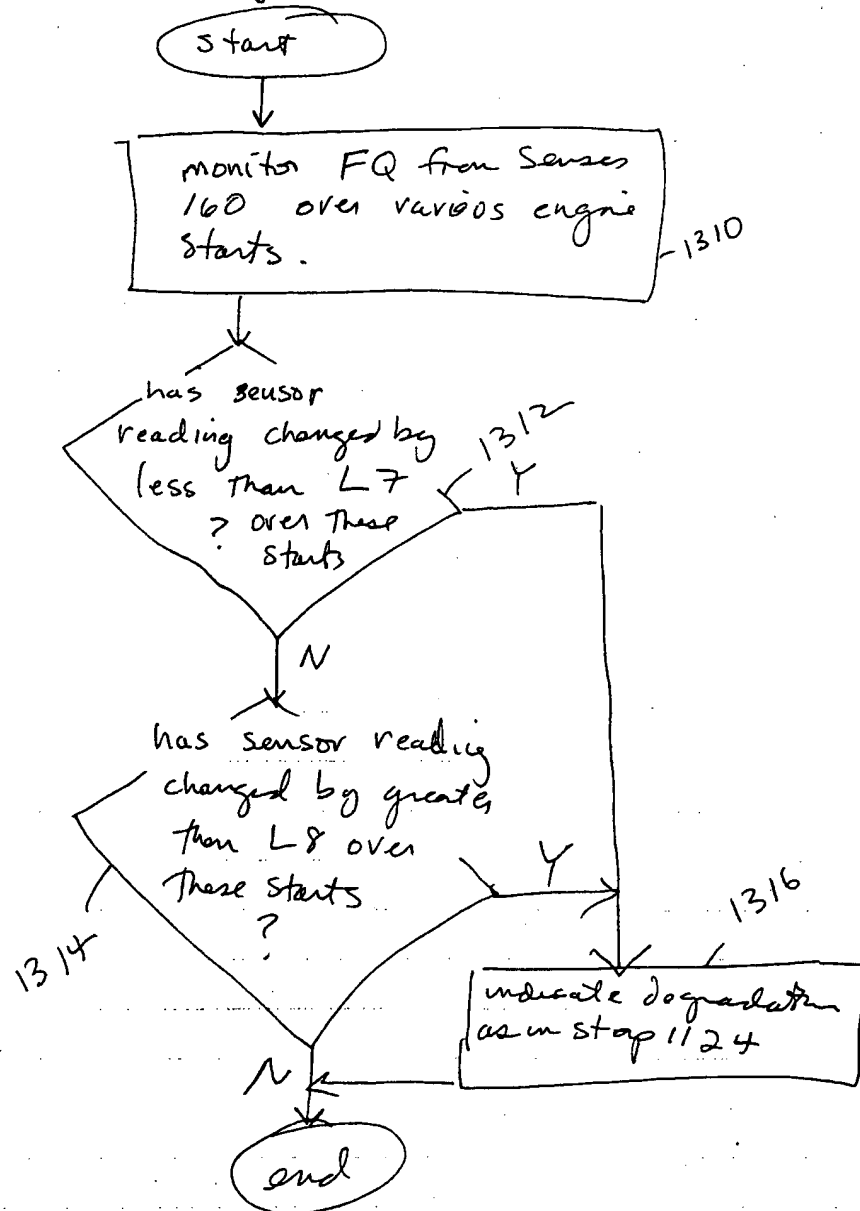 start
monitor FQ from Senses
160 over various engine
starts.
1310
has sensor
reading changed by
less than L7
? over these
starts
1312
Y
N
has sensor reading
changed by greater
than L8 over
these starts
?
1314
Y
1316
indicate degradation
as in step 1124
N
end